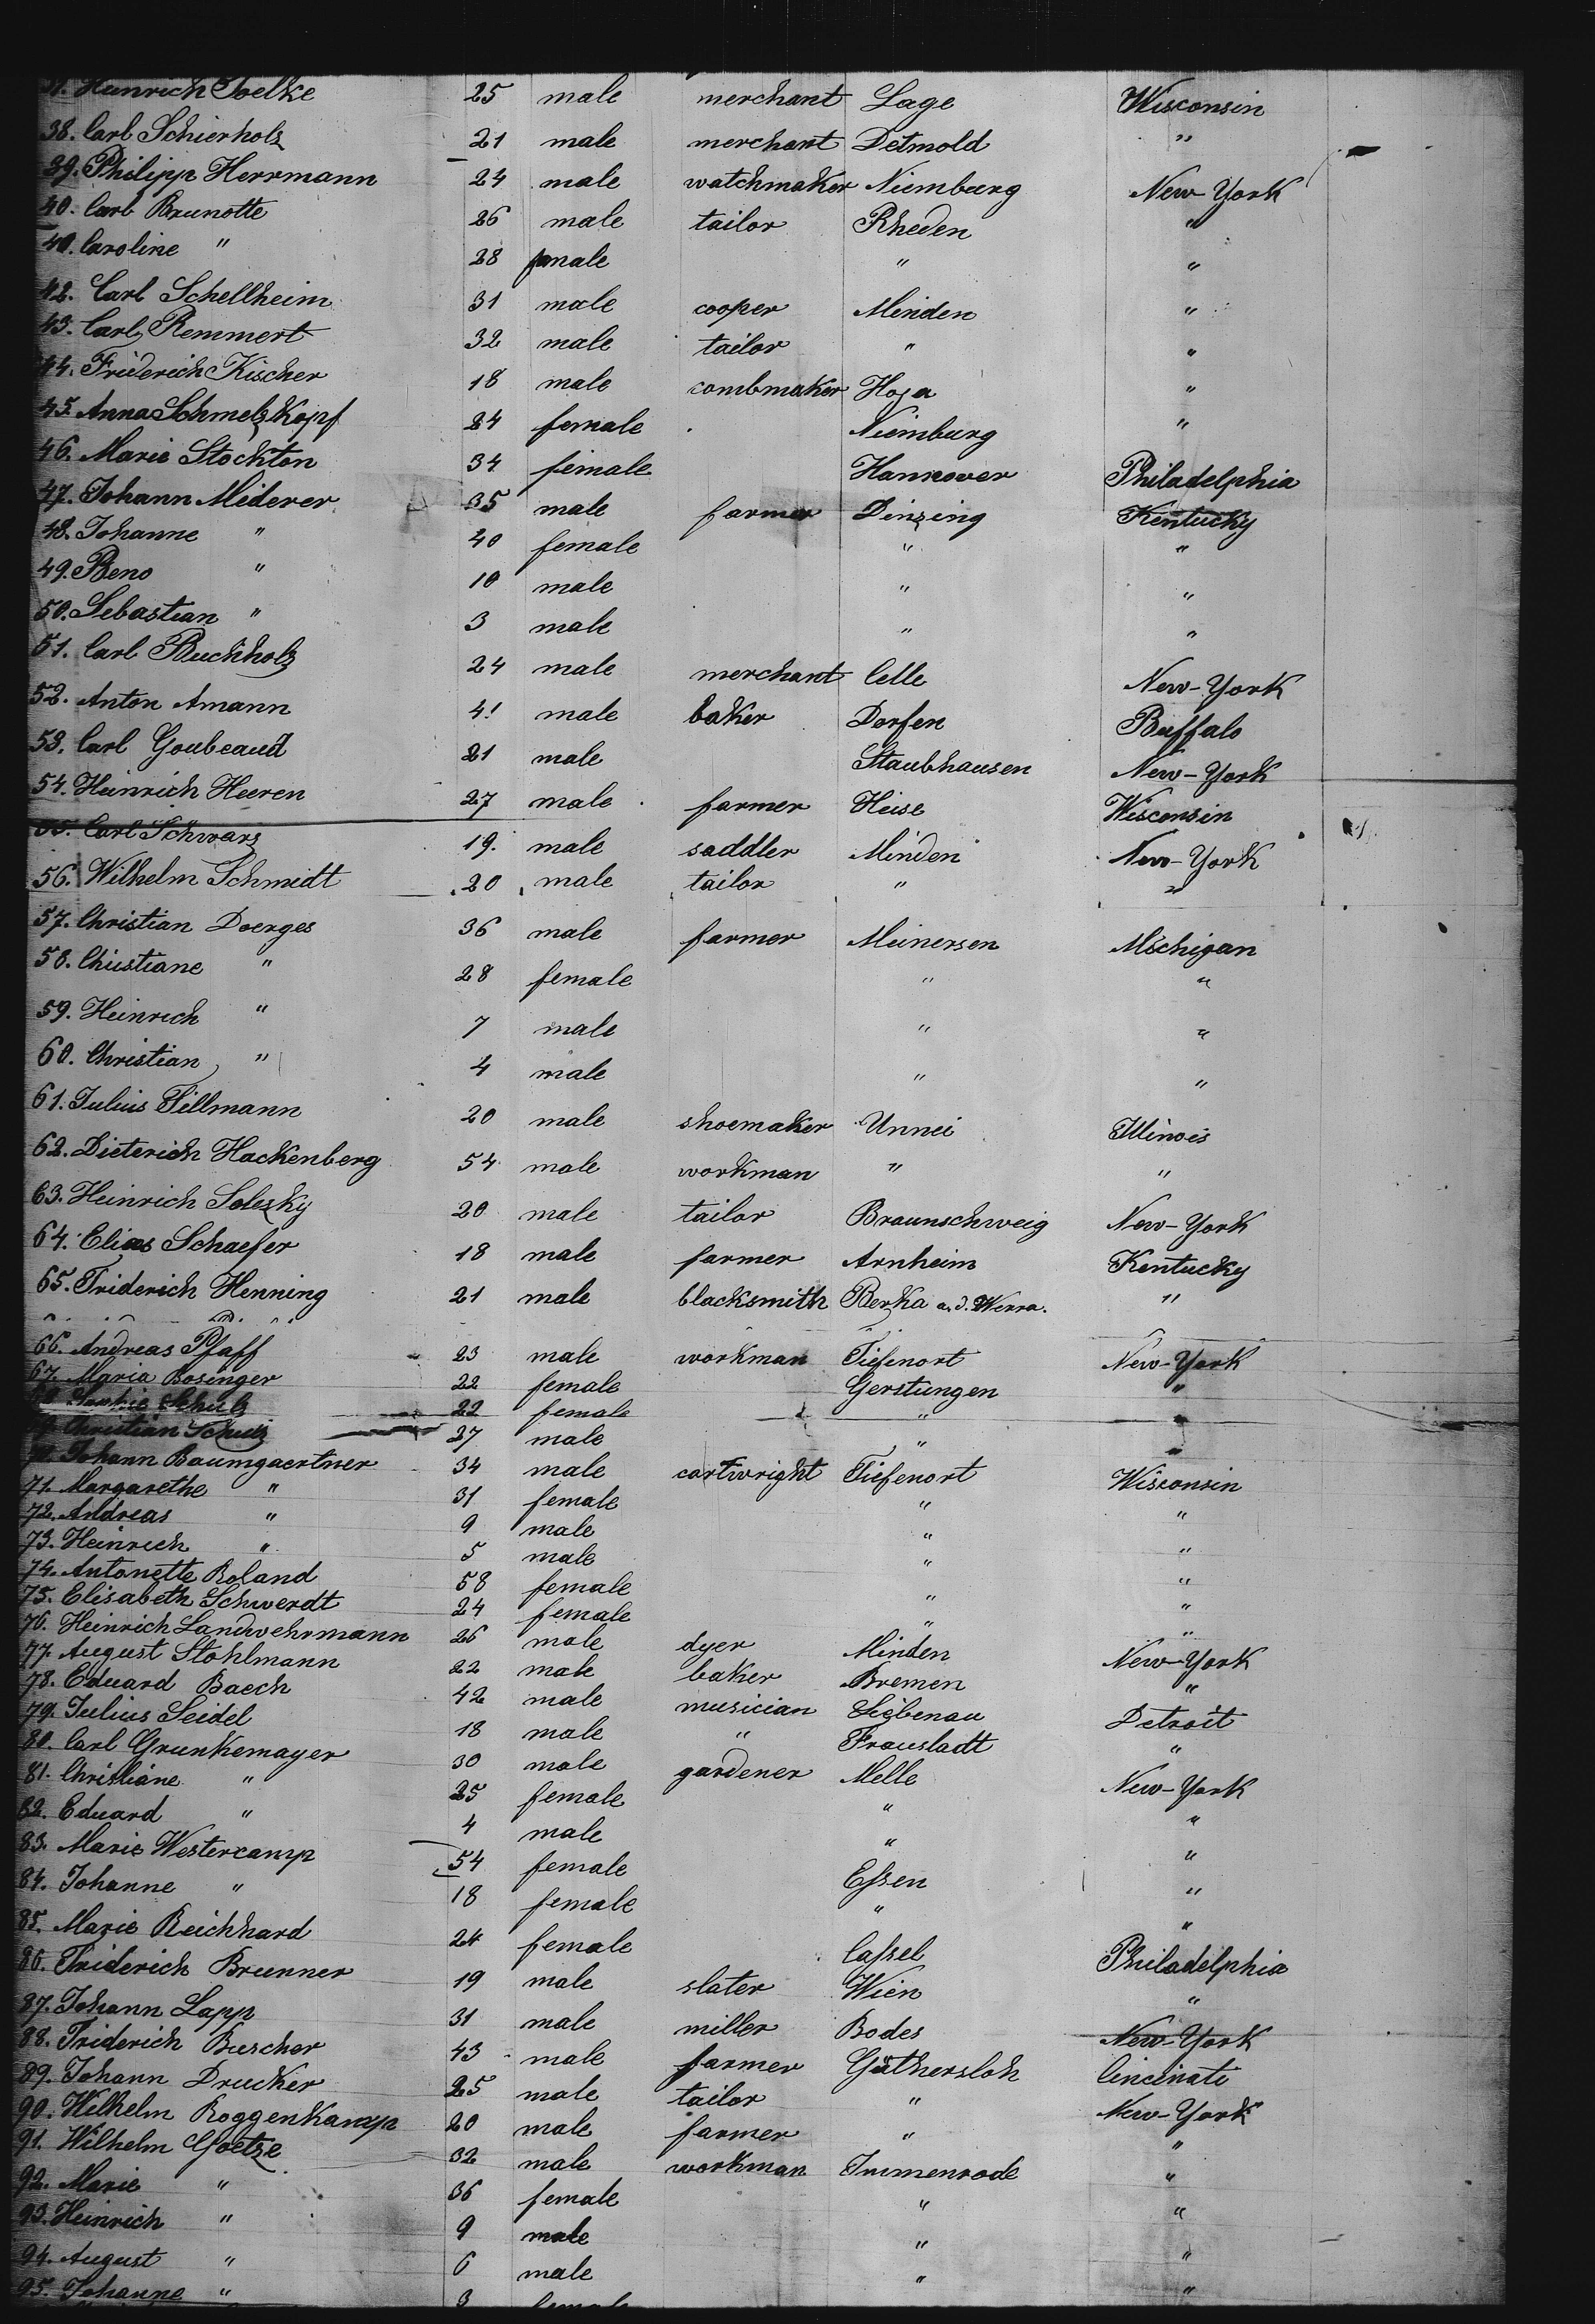 37. Heinrich Toelke 25 male merchant Lage Wisconsin
38. Carl Schierholz 21 male merchant Detmold "
39. Philipp Herrmann 24 male watchmaker Niemburg New-York
40. Carl Brunotte 26 male tailor Rheden "
40. Caroline " 28 female " "
42. Carl Schellheim 31 male cooper Minden "
43. Carl Remmert 32 male tailor " "
44. Friderich Kischer 18 male combmaker Hoja "
45. Anna Schmelzkopf 24 female Niemburg "
46. Marie Stockton 34 female Hannover Philadelphia
47. Johann Miderer 35 male farmer Dinzing Kentucky
48. Johanne " 40 female " "
49. Beno " 10 male " "
50. Sebastian " 3 male " "
51. Carl Buchholz 24 male merchant Celle New-York
52. Anton Amann 41 male baker Dorfen Buffalo
53. Carl Goubeaud 21 male Staubhausen New-York
54. Heinrich Heeren 27 male farmer Heise Wisconsin
55. Carl Schwarz 19. male saddler Minden New-York
56. Wilhelm Schmidt 20 male tailor " "
57. Christian Doerges 36 male farmer Meinersen Michigan
58. Christiane " 28 female " "
59. Heinrich " 7 male " "
60. Christian " 4 male " "
61. Julius Tillmann 20 male shoemaker Unnei Illinois
62. Dieterich Hackenberg 54 male workman " "
63. Heinrich Solezky 20 male tailor Braunschweig New-York
64. Elias Schaefer 18 male farmer Arnheim Kentucky
65. Friderich Henning 21 male blacksmith Berka a. d. Werra. "
66. Andreas Pfaff 23 male workman Tiefenort New-York
67. Maria Bosinger 22 female Gerstungen "
Schulz 22 female "
Christian Schulz 27 male "
70. Johann Baumgaertner 34 male cartwright Tiefenort Wisconsin
71. Margarethe " 31 female " "
72. Andreas " 9 male " "
73. Heinrich " 5 male " "
74. Antonette Roland 58 female " "
75. Elisabeth Schwerdt 24 female " "
76. Heinrich Landwehrmann 26 male dyer Minden New-York
77. August Stohlmann 22 male baker Bremen "
78. Eduard Baech 42 male musician Liebenau Detroit
79. Julius Seidel 18 male " Fraustadt "
80. Carl Grunkemayer 30 male gardener Melle New-York
81. Christiane " 25 female " "
82. Eduard " 4 male " "
83. Marie Westercamp 54 female Essen "
84. Johanne " 18 female " "
85. Marie Reichhard 24 female Cassel Philadelphia
86. Friderich Brunner 19 male slater Wien "
87. Johann Lapp 31 male miller Bodes New-York
88. Friderich Buscher 43 male farmer Güthersloh Cincinati
89. Johann Drucker 25 male tailor " New-York
90. Wilhelm Roggenkamp 20 male farmer " "
91. Wilhelm Goetze 32 male workman Immenrode "
92. Marie " 36 female " "
93. Heinrich " 9 male " "
94. August " 6 male " "
95. Johanne " 3 female